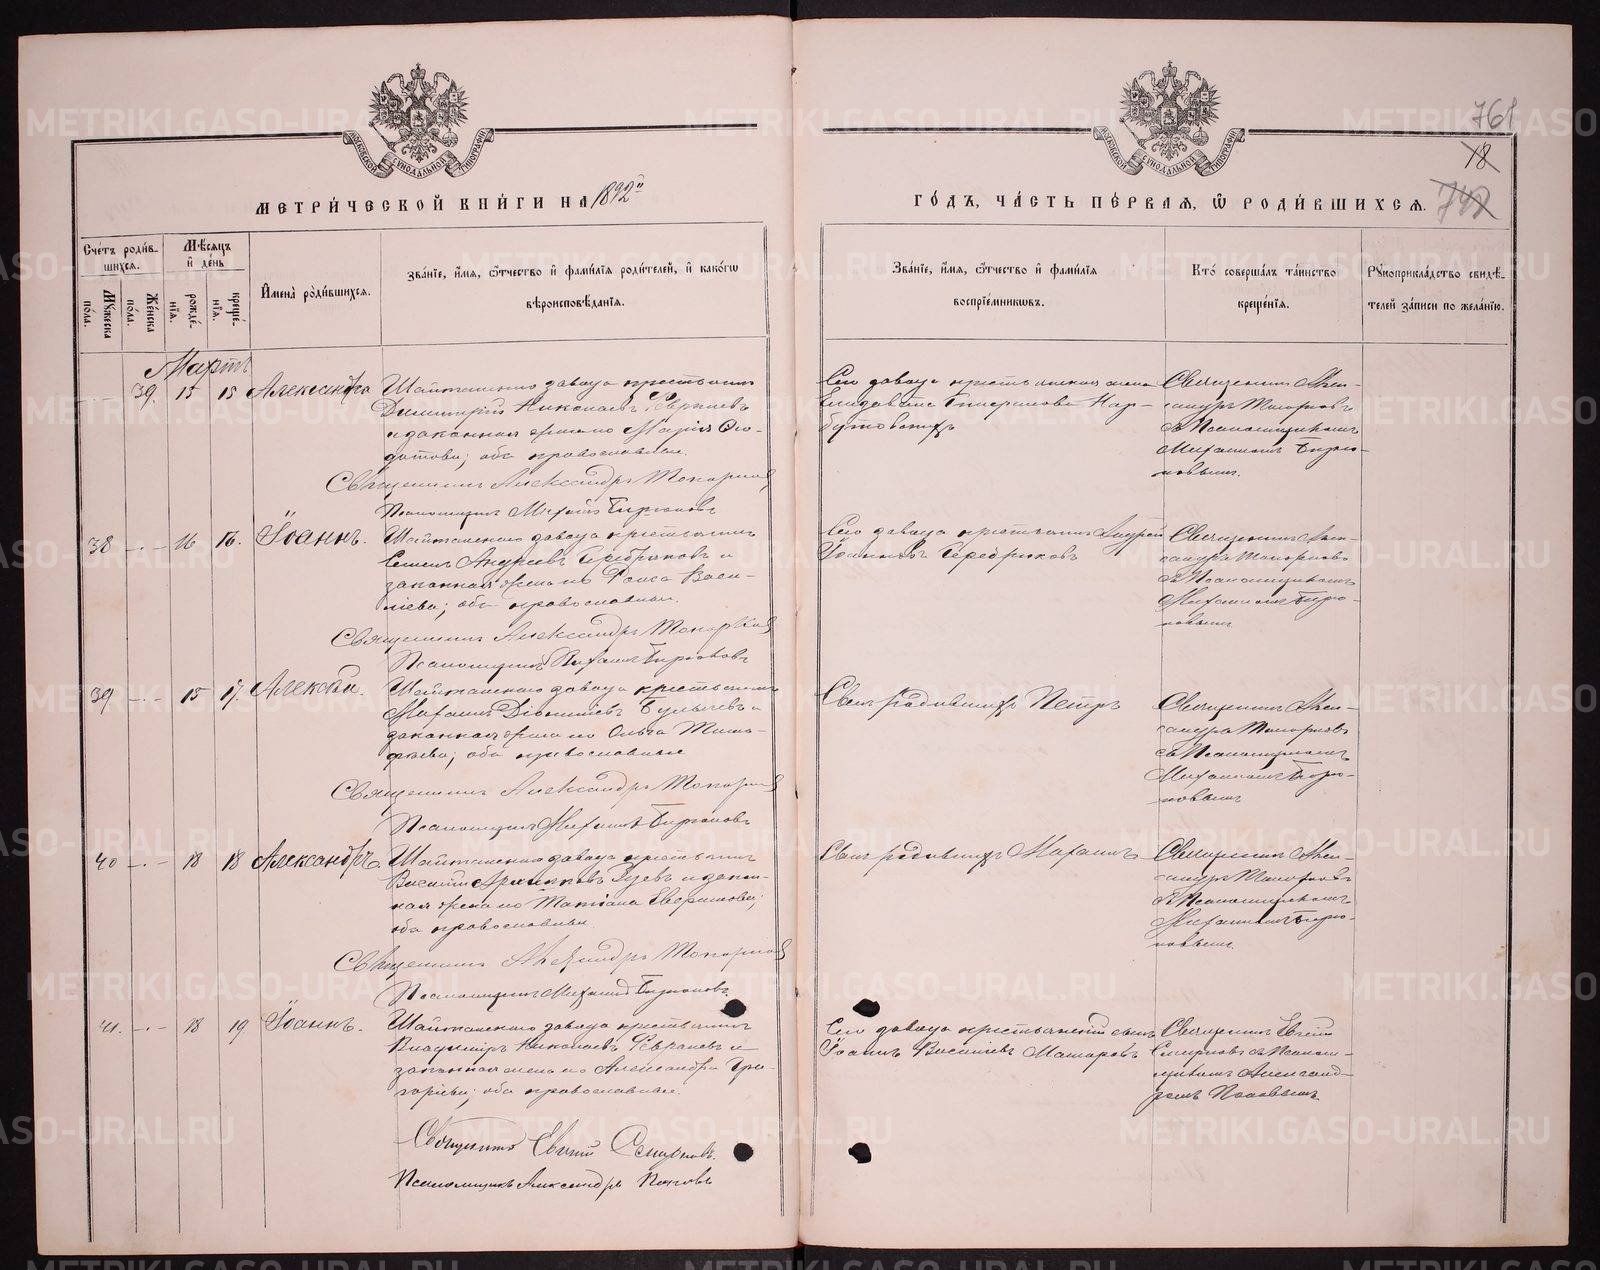 МОСКОВСКОЙ СѴНОДАЛЬНОЙ ТИПОГРАФІИ
МОСКОВСКОЙ СѴНОДАЛЬНОЙ ТИПОГРАФІИ
761
18
742
МЕТРИ́ЧЕСКОЙ КНИ́ГИ НА 1892й
ГО́ДЪ, ЧА́СТЬ ПЕ́РВАЯ, Ѡ РОДИ́ВШИХСЯ.
Сче́тъ роди́в-
шихся.
Мꙋ́жеска по́ла.
Же́нска по́ла.
Мѣ́сяцъ
и҆ де́нь
рожде́нїя.
креще́нїя.
И҆мена̀ роди́вшихся.
Зва́нїе, и҆́мя, ѻ҆́тчество и҆ фами́лїя роди́телей, и҆ како́гѡ
вѣроисповѣ́данїя.
Зва́нїе, и҆́мя, ѻ҆́тчество и҆ фами́лїя
воспрїе́мниковъ.
Кто̀ соверша́лъ та́инство
креще́нїя.
Рꙋкоприкла́дство свидѣ́-
телей за́писи по жела́нїю.
Мартъ
39. 15 15 Александра
Шайтанскаго завода крестьянинъ
Димитрій Николаевъ
и законная жена его Марія Ѳео-
дотова; оба православные.
Священникъ Александръ Топорковъ
Псаломщикъ Михаилъ Бирюковъ
Сего завода крестьянская жена
Елизавета
Священникъ Алек-
сандръ Топорковъ
съ Псаломщикомъ
Михаиломъ Бирю-
ковымъ.
38 16 16. Іоаннъ.
Шайтанскаго завода крестьянинъ
Семенъ Андреевъ Серебряковъ и
законная жена его Раиса Васи-
ліева; оба православные.
Священникъ Александръ Топорковъ
Псаломщикъ Михаилъ Бирюковъ
Сего завода крестьянинъ Андрей
Іоанновъ Серебряковъ
Священникъ Алек-
сандръ Топорковъ
съ Псаломщикомъ
Михаиломъ Бирю-
ковымъ
39 15 17 Алексѣй.
Шайтанскаго завода крестьянинъ
Михаилъ Діонисіевъ Булычевъ и
законная жена его Ольга Тимо-
феева; оба православные
Священникъ Александръ Топорковъ
Псаломщикъ Михаилъ Бирюковъ
Сынъ родившихъ Петръ
Священникъ Алек-
сандръ Топорковъ
съ Псаломщикомъ
Михаиломъ Бирю-
ковымъ
40 18 18 Александръ
Шайтанскаго завода крестьянинъ
Василій Зуевъ и закон-
ная жена его Татіана
оба православные.
Священникъ Александръ Топорковъ
Псаломщикъ Михаилъ Бирюковъ.
Сынъ родившихъ Михаилъ
Священникъ Алек-
сандръ Топорковъ
съ Псаломщикомъ
Михаиломъ Бирю-
ковымъ.
41. 18 19 Іоаннъ.
Шайтанскаго завода крестьянинъ
Владиміръ Николаевъ и
законная жена его Александра Гри-
горіева; оба православные.
Священникъ Евгеній Смирновъ.
Псаломщикъ Александръ Поповъ
Сего завода крестьянскій сынъ
Іоаннъ Василіевъ Макаровъ
Священникъ Евгеній
Смирновъ съ Псалом-
щикомъ Александ-
ромъ Поповымъ.
METRIKI.GASO-URAL.RU